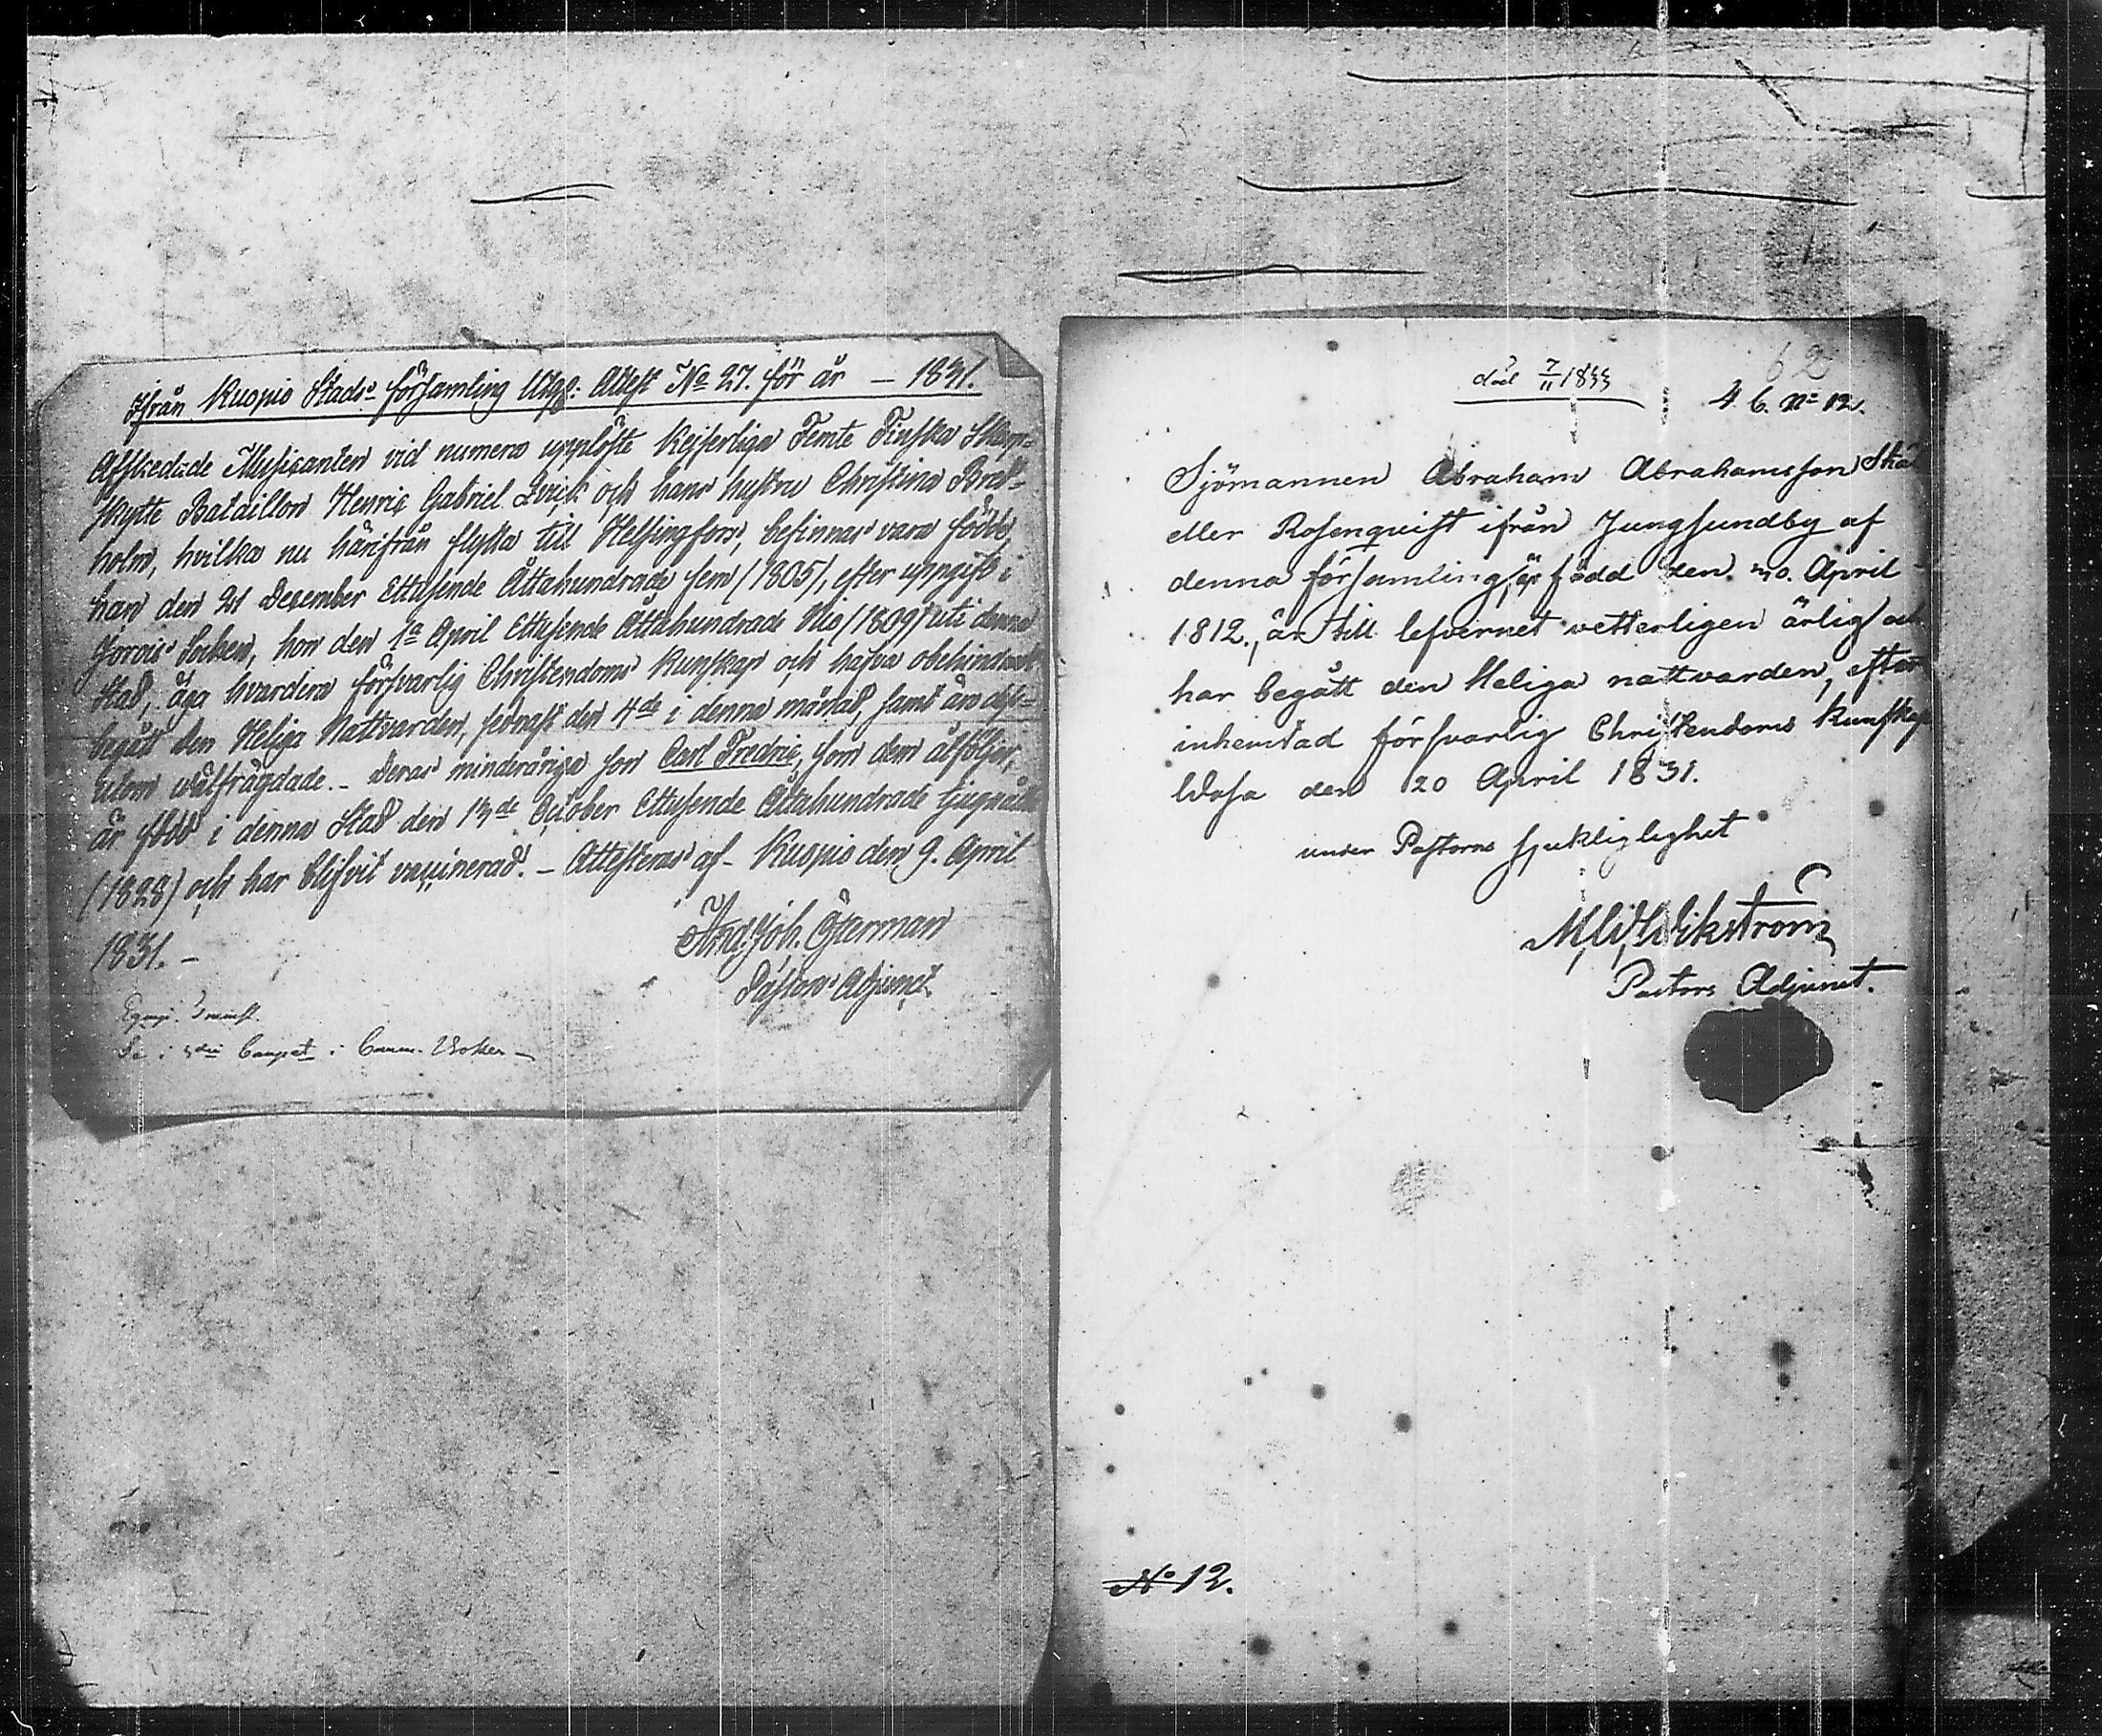 Ifrån Kuopio Stads församling Utgg: Attest No 27. för år — 1831.
Afskedade Musicanten vid numera upplöste Kejserliga Femte Finska Skarp-
skytte Bataillon Henric Gabriel Qvick och hans hustru Christina Bred-
holm, hvilka nu härifrån flytta till Helsingfors, befinnas vara födde,
han den 21 December Ettusende Åttahundrade fem (1805), efter uppgift i
Jorois Socken, hon den 1a April Ettusende Åttahundrade Nio (1809) uti denna
Stad, äga hvardera försvarlig Christendoms kunskap och hafva obehindradt
begått den Heliga Nattvarden, sednast den 4de i denna månad, samt äro dess-
utom välfrägdade. - Deras minderåriga son Carl Fredric, som dem åtföljer,
är född i denna Stad den 13de October Ettusende Åttahundrade tjuguåtta
(1828) och har blifvit vaccinerad. - Attesteras af - Kuopio den 9. April
1831. -
And. Joh. Österman
Pastors Adjunct.
i Comm. Boken -
död 7/11 1833
62
4. 6. No 12.
Sjömannen Abraham Abrahamsson
eller Rosenquist ifrån Jungsundby af
denna församling, är född den 30. April
1812., är till lefvernet vetterligen ärlig och
har begått den Heliga nattvarden, efter
inhemtad försvarlig Christendoms kunskap
Wasa den 20 April 1831.
under Pastorns sjukliglighet
Wikström
Pastors Adjunct.
No 12.